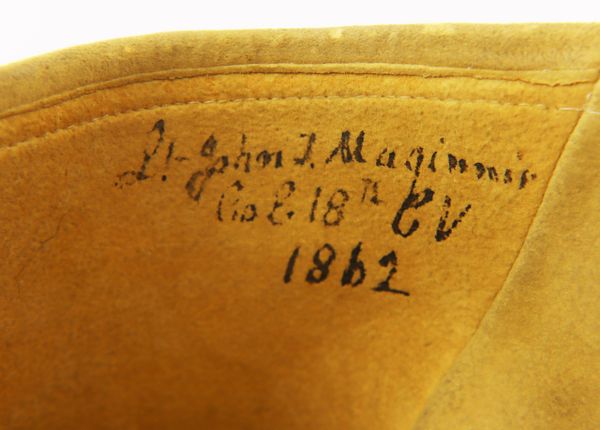 Lt. John T. Maginnis
Co E. 18th CV
1862